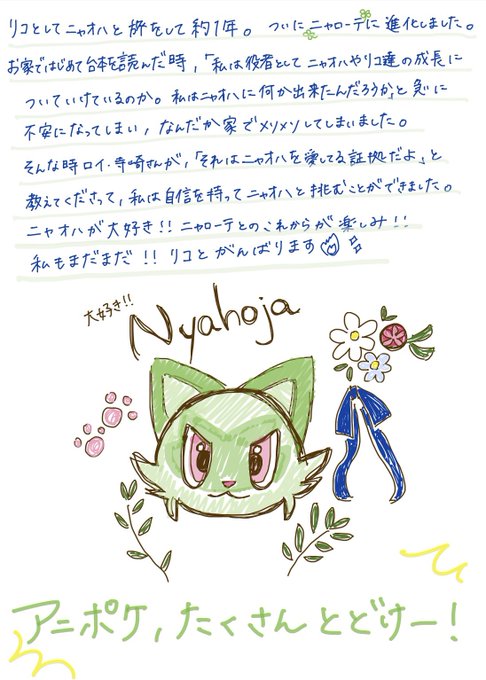 リコとしてニャオハと旅をして約1年。 ついにニャローテに進化しました。
お家ではじめて台本を読んだ時,「私は役者としてニャオハやリコ達の成長に
ついていけているのか。私はニャオハに何か出来たんだろうか」と急に
不安になってしまい,なんだか家でメソメソしてしまいました。
そんな時ロイ・寺崎さんが,「それはニャオハを愛してる証拠だよ」と
教えてくださって,私は自信を持ってニャオハと挑むことができました。
ニャオハが大好き!! ニャローテとのこれからが楽しみ!!
私もまだまだ!! リコとがんばります
大好き!!
Nyahoja
アニポケ,たくさんとどけー!